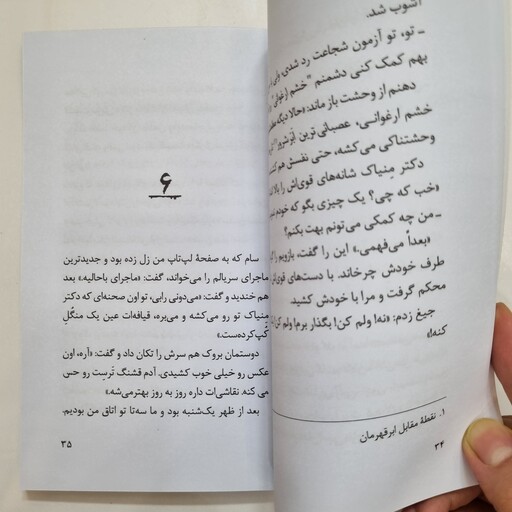 آشوب شد.
ـ تو، تو آزمون شجاعت رد شدی، ولی
بهم کمک کنی دشمنم "خشم ارغوانی"
دهنم از وحشت باز ماند: «حالا دیگه
خشم ارغوانی، عصبانی‌ترین اَبَرشرور۱
وحشتناکی می‌کشه، حتی نفسش هم
دکتر مِنیاک شانه‌های قوی‌اش را بالا
«خب که چی؟ یک چیزی بگو که خودم
ـ من چه کمکی می‌تونم بهت بکنم؟
«بعداً می‌فهمی.» این را گفت، بازویم را
طرف خودش چرخاند. با دست‌های قوی‌اش
محکم گرفت و مرا با خودش کشید.
جیغ زدم: «نه! ولم کن! بگذار برم! ولم کن!
کنه!»
۱. نقطهٔ مقابل ابرقهرمان
۳۴
۶
سام که به صفحهٔ لپ‌تاپ من زل زده بود و جدیدترین
ماجرای سریالم را می‌خواند، گفت: «ماجرای باحالیه.» بعد
هم خندید و گفت: «می‌دونی رابی، تو اون صحنه‌ای که دکتر
مِنیاک تو رو می‌کشه و می‌بره، قیافه‌ات عین یک منگلِ
کُپ‌کرده‌ست.»
دوستمان بروک هم سرش را تکان داد و گفت: «آره، اون
عکس رو خیلی خوب کشیدی. آدم قشنگ ترست رو حس
می کنه. نقاشی‌ات داره روز به روز بهتر می‌شه.»
بعد از ظهر یک‌شنبه بود و ما سه‌تا تو اتاق من بودیم.
۳۵